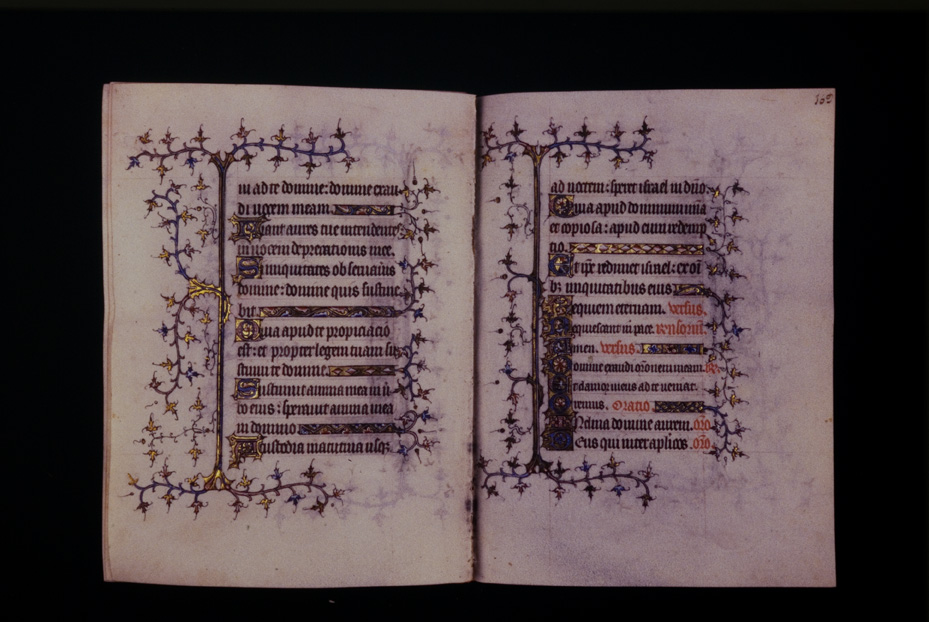 ui ad te domine: domine exau
di uocem meam.
Fiant aures tue intendentes:
in uocem deprecationis mee.
Si iniquitates obseruaueris
domine: domine quis sustine
bit.
Quia apud te propiciacio
est: et propter legem tuam sus
tinui te domine.
Sustinuit anima mea in u
bo eius: sperauit anima mea
in domino
A custodia matutina usq
ad noctem: speret israel in dno
Quia apud dominum mia
et copiosa: apud eum redemp
tio.
Et ipe redimet israel: ex oi
bz iniquitatibus eius
Requiem eternam. versus.
Requiescant in pace.
Amen. versus.
Domine exaudi oronem meam.
Et clamor meus ad te ueniat.
Oremus. Oratio
Inclina domine aurem. oro
Deus qui inter aplicos. oro